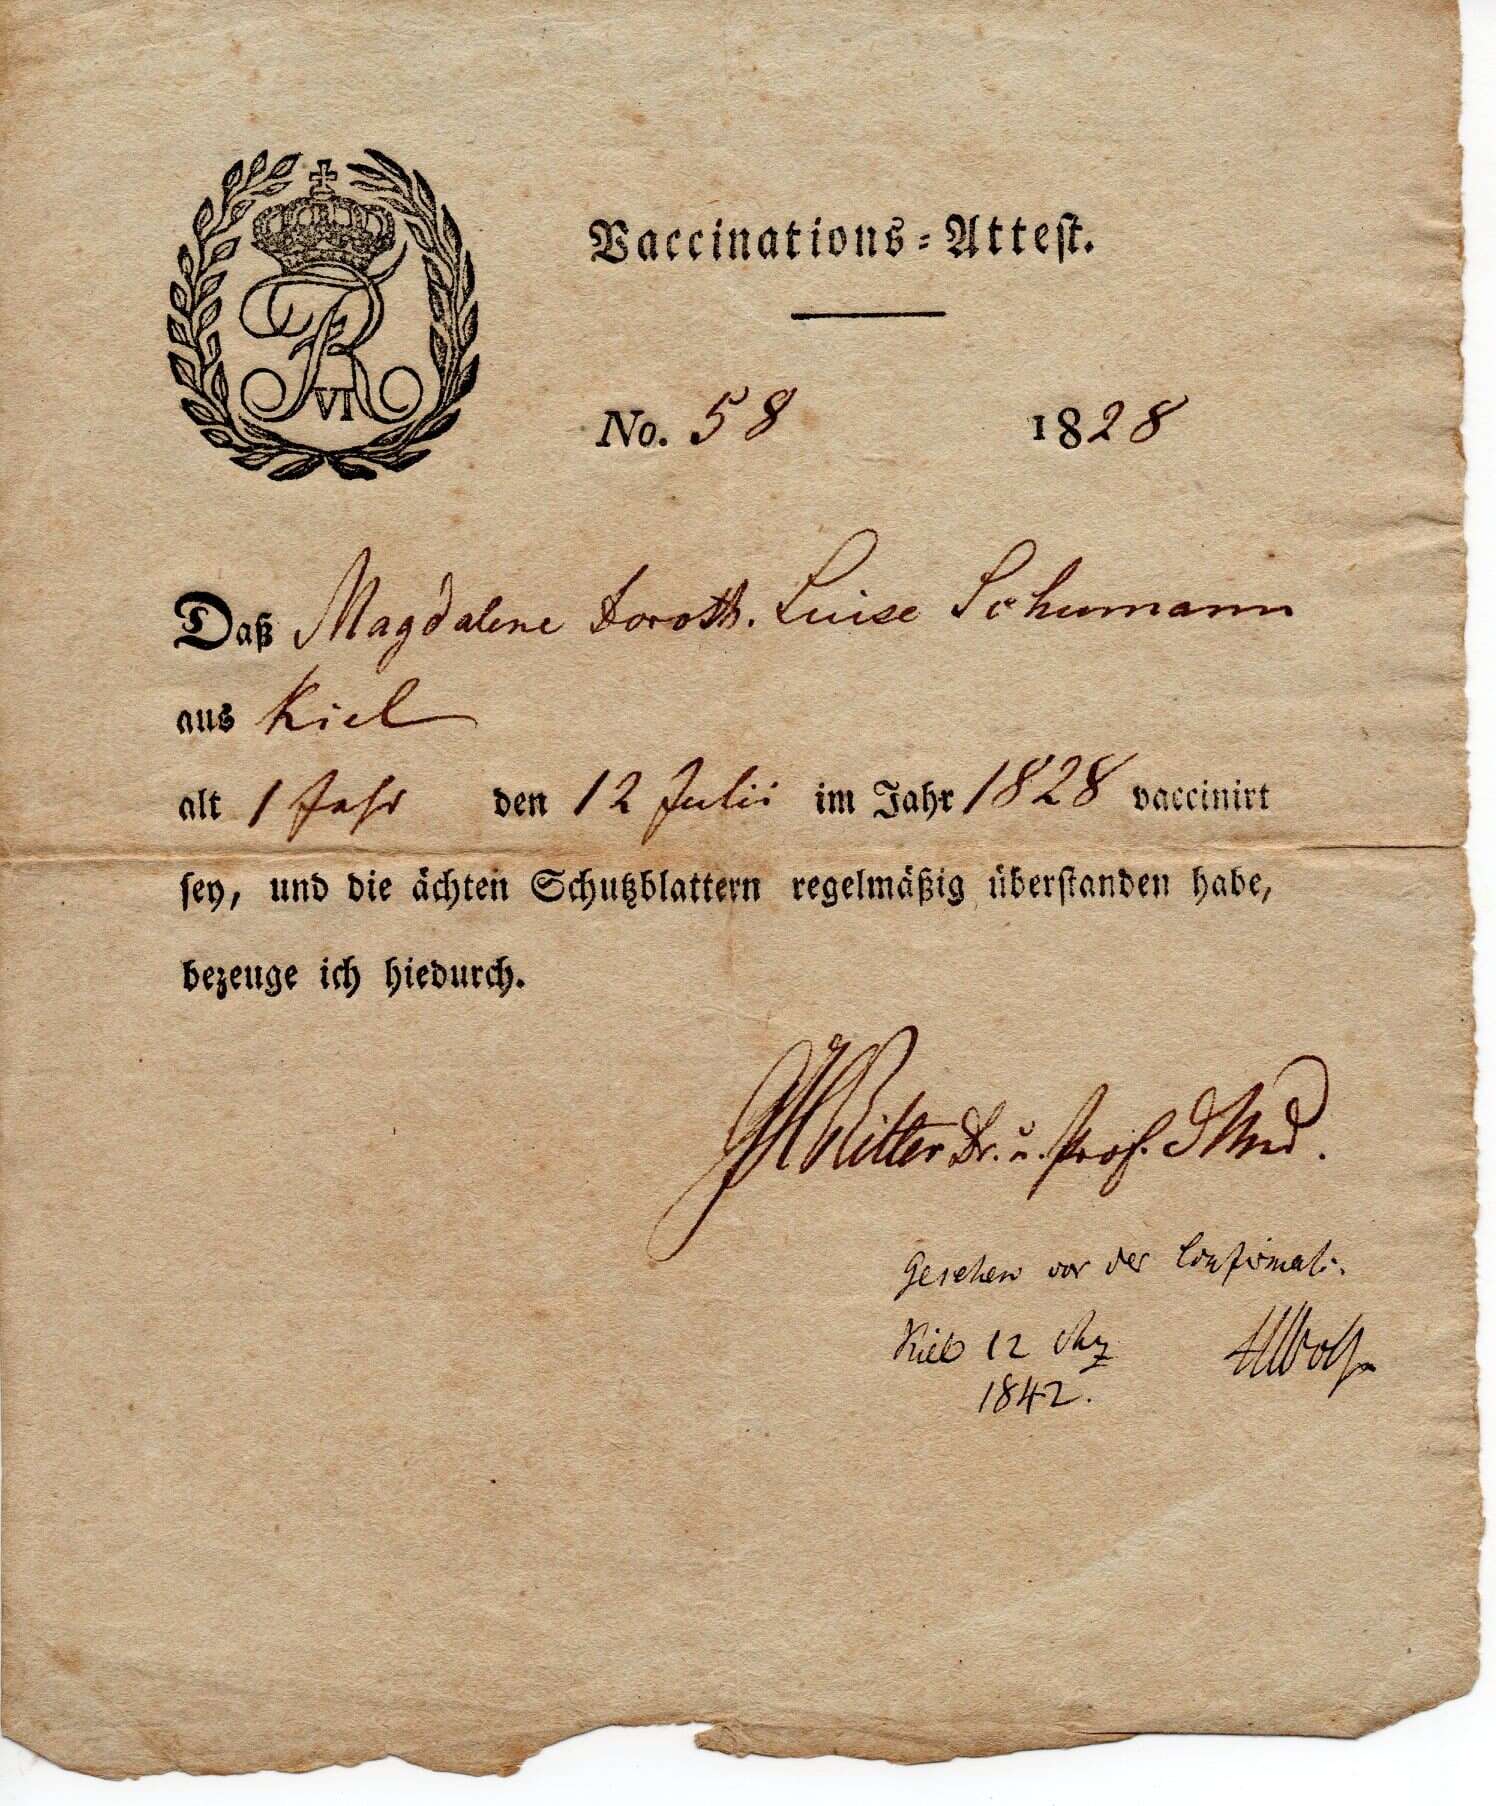 FR
VI
Vaccinations-Attest.
No. 58 1828
Daß Magdalene Doroth. Luise Schumann
aus Kiel
alt 1 Jahr den 12 Julii im Jahr 1828 vaccinirt
sey, und die ächten Schutzblattern regelmäßig überstanden habe,
bezeuge ich hiedurch.
GH Ritter Dr. u. Prof. d Med.
Gesehen vor der Confirmati.
Kiel 12
1842.